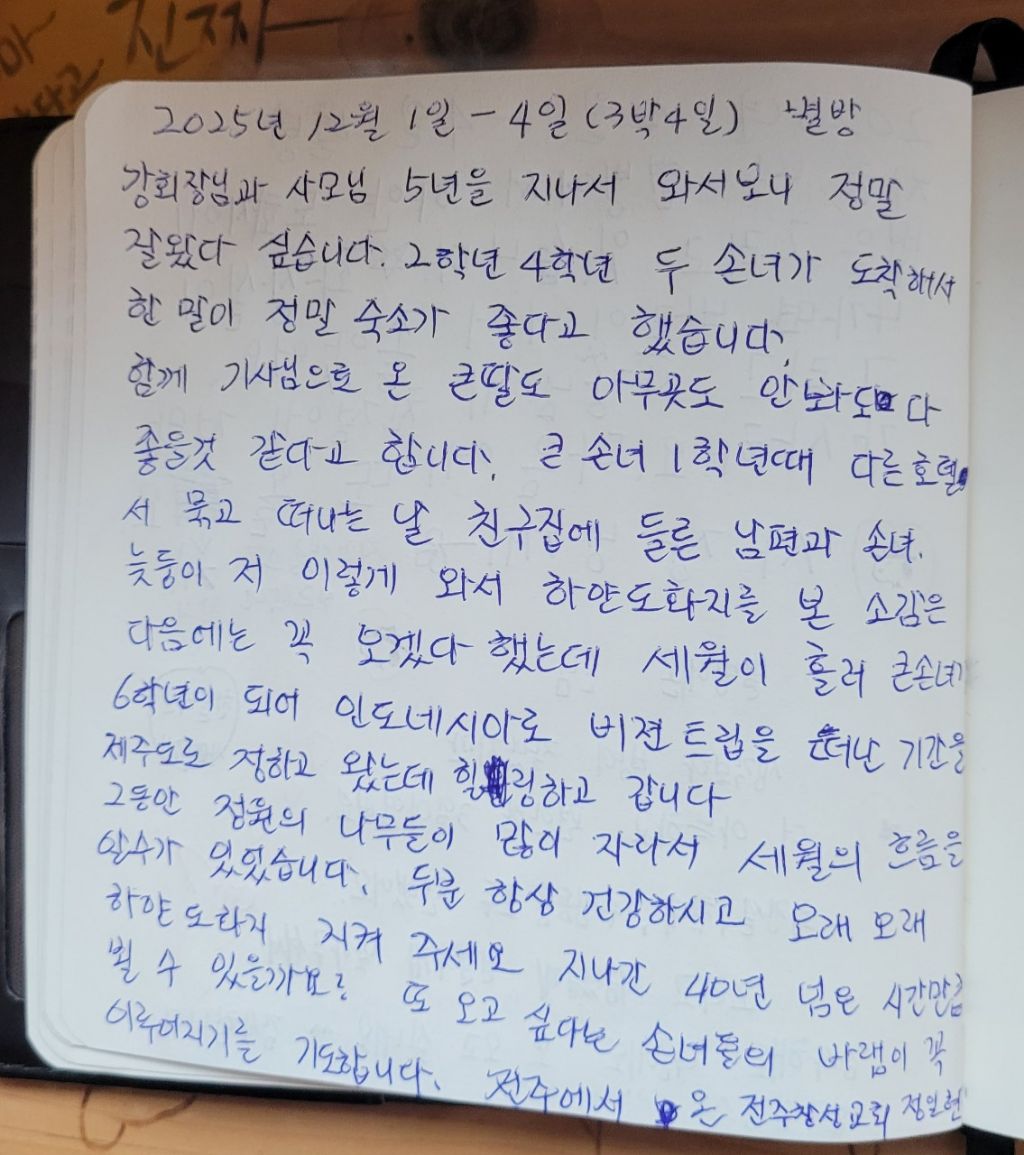 진짜
2025년 12월 1일 - 4일 (3박4일) 별방
강회장님과 사모님 5년을 지나서 와서보니 정말
잘왔다 싶습니다. 2학년 4학년 두 손녀가 도착해서
한 말이 정말 숙소가 좋다고 했습니다.
함께 기사님으로 온 큰딸도 아무곳도 안봐도 다
좋을것 같다고 합니다. 큰 손녀 1학년때 다른호텔
서 묶고 떠나는 날 친구집에 들른 남편과 손녀.
늦둥이 저 이렇게 와서 하얀도화지를 본 소감은
다음에는 꼭 오겠다 했는데 세월이 흘러 큰손녀가
6학년이 되어 인도네시아로 비젼트립을 떠난 기간을
제주도로 정하고 왔는데 힐링하고 갑니다
그동안 정원의 나무들이 많이 자라서 세월의 흐름을
알수가 있었습니다. 두분 항상 건강하시고 오래 오래
하얀도화지 지켜 주세요 지나간 40년 넘은 시간만큼
뵐 수 있을까요? 또 오고 싶다는 손녀들의 바램이 꼭
이루어지기를 기도합니다. 전주에서 온 전주창성교회